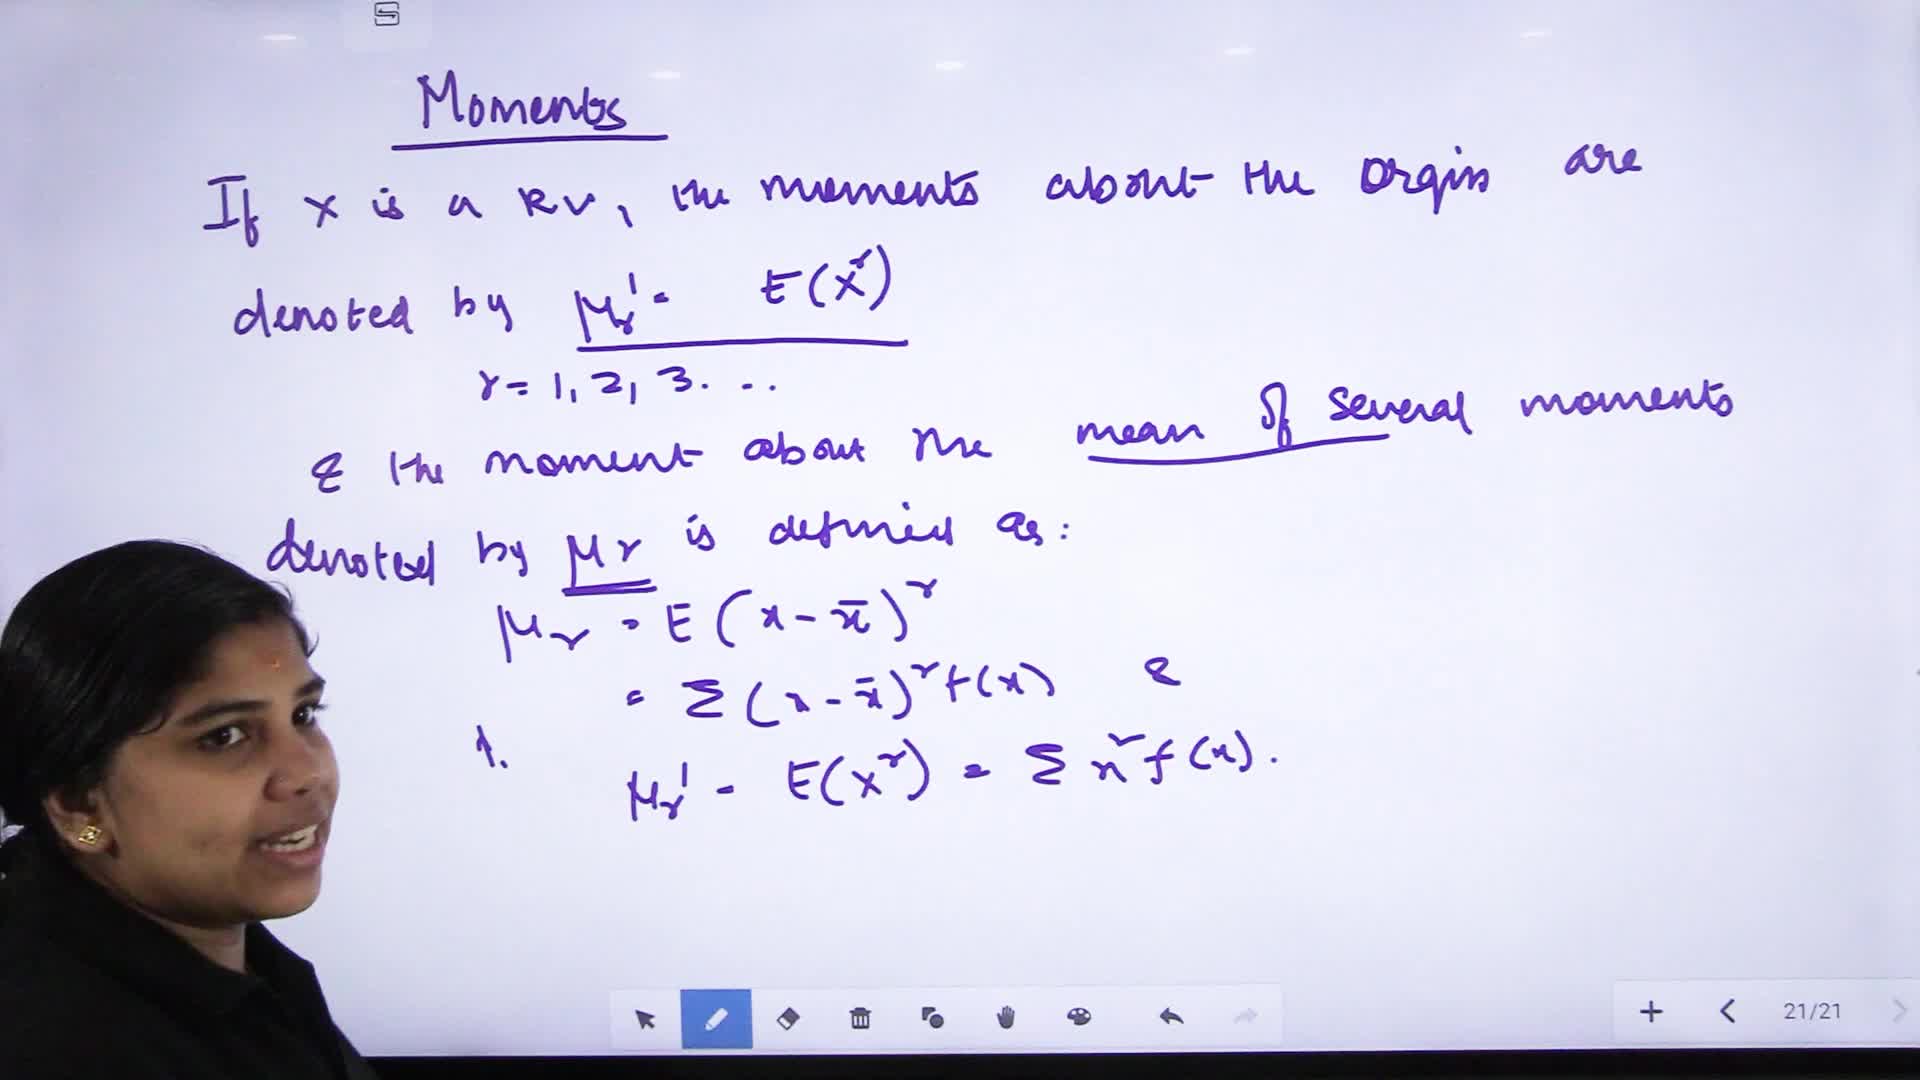 Moments
If X is a RV, the moments about the Orgin are
denoted by μr' = E(X^r)
r = 1, 2, 3. ...
& the moment about the mean of several moments
denoted by μr is defined as:
μr = E(x - x̄)^r
= Σ(x - x̄)^r f(x) &
1.
μr' = E(X^r) = Σ x^r f(x).
21/21